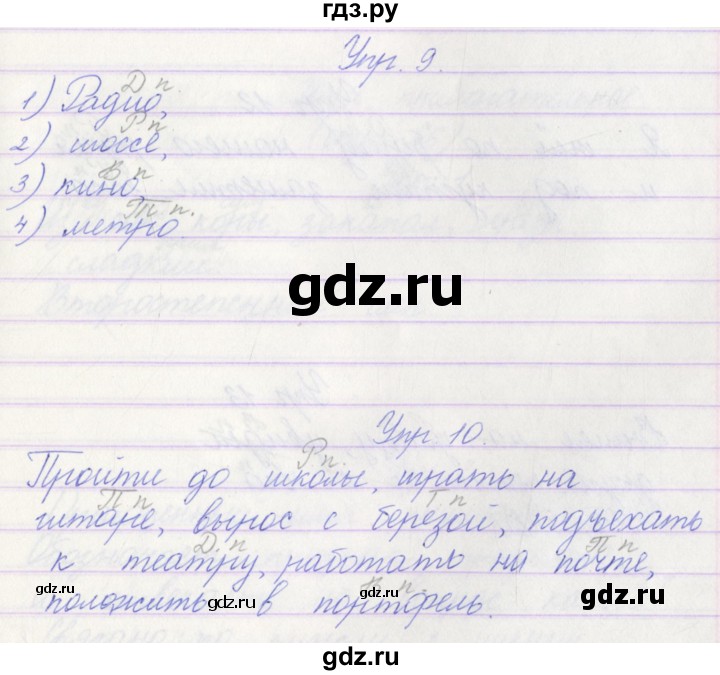 гдз.ру
Упр. 9.
Д п.
1) Радио,
Р п
2) шоссе,
В п
3) кино
Т п.
4) метро.
gdz.ru
Упр 10.
Р п.
Пройти до школы, играть на
П п Т п
гитаре, вынос с березой, подъехать
Д. п П п
к театру, работать на почте,
gdz.ru В п. gdz.ru
положить в портфель.
gdz.ru